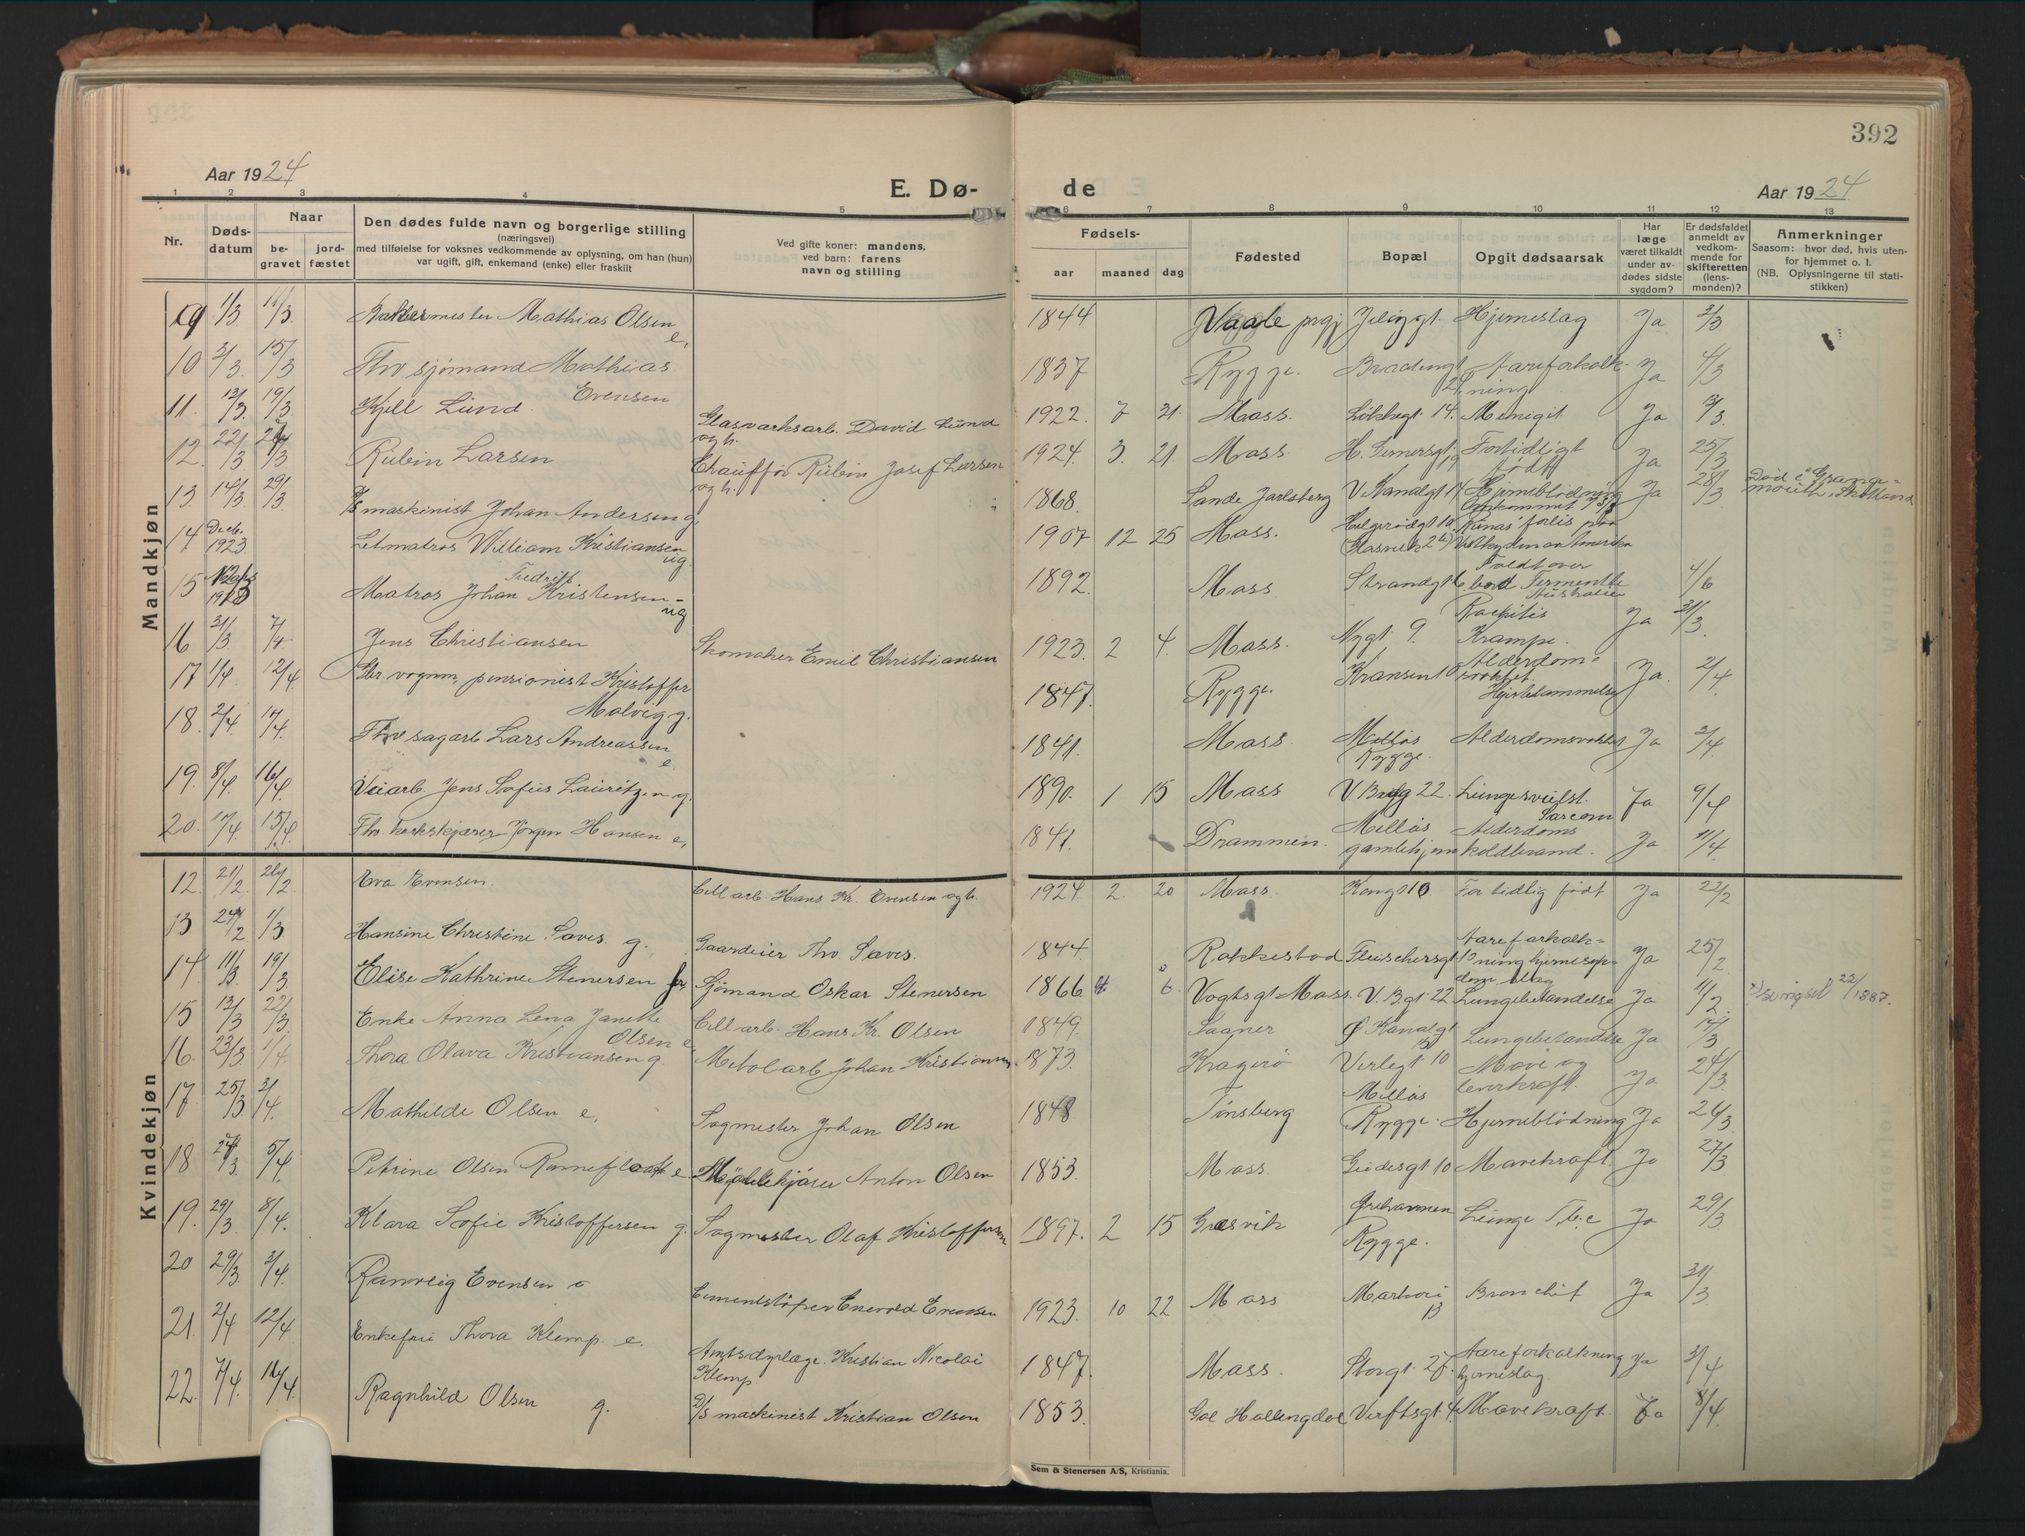 392
Aar 1924
E. Dø-
de
Aar 1924
1 2 3 4 5 6 7 8 9 10 11 12 13
Nr.
Døds-
datum
Naar
be-
gravet
jord-
fæstet
Den dødes fulde navn og borgerlige stilling
(næringsvei)
med tilføielse for voksnes vedkommende av oplysning, om han (hun)
var ugift, gift, enkemand (enke) eller fraskilt
Ved gifte koner: mandens,
ved barn: farens
navn og stilling
Fødsels-
aar
maaned
dag
Fødested
Bopæl
Opgit dødsaarsak
Har
læge
været tilkaldt
under av-
dødes sidste
sygdom?
Er dødsfaldet
anmeldt av
vedkom-
mende for
skifteretten
(lens-
manden)?
Anmerkninger
Saasom: hvor død, hvis uten-
for hjemmet o. l.
(NB. Oplysningerne til stati-
stikken)
Mandkjøn
9 1/3 11/3 Bakermester Mathias Olsen e, 1844 Vaale prgj Jeløygt. Hjerneslag Ja 3/3
10 2/3 15/3 Fhv sjømand Mathias Evensen 1837 Rygge. Aareforkalk-ning Ja 4/3
11. 12/3 19/3 Kjell Lund. Glasverksarb. David Lund og h. 1922. 7 21. Moss. Løkkegt. 14. Menigit Ja
12. 22/3 Rubin Larsen Chauffør Rubin Josef Larsen og h. 1924. 3. 21. Moss. H. Gernersgt. 19 Fortidligt født Ja 25/3
13 14/3 29/3 D/s maskinist Johan Andersen g. 1868. Sande Jarlsberg V. Kanalgt 14 Hjerneblødning Ja 28/3 Død i Grange-mouth, Skotland
14 Decb. 1923 Letmatros William Kristiansen ug. 1907 12 25 Moss. Helgerødgt 10. forlis paa
15 Matros Johan Fredrik Kristensen - ug 1892. Moss Strandgt Faldt over bord Australien 4/6
16 31/3 7/4 Jens Christiansen Skomaker Emil Christiansen 1923. 2 4. Moss. Nygt. 9. Rachitis Krampe. Ja 31/3
17 1/4 12/4 pensionist Kristoffer Malvig g. 1847. Rygge. Kransen 10 Alderdom- svakhet. Ja. 2/4
18. 2/4 Fhv sagarb Lars Andreassen e. 1841. Moss. Melløs Rygge. Alderdomsvakhet Ja 3/4
19. 8/4 16/4 Veiarb. Jens Sofus Lauritzen g. 1890. 1 15 Moss 22. Lungesvulst. Sarcom Ja 9/4
20. 15/4 Fhv. korkskjærer Jørgen Hansen e, 1841. Drammen. Melløs gamlehjem Alderdoms koldbrand. Ja 11/4
Kvindekjøn
12. 21/2 26/2 Eva Evensen. Cell arb. Hans Kr. Evensen og h. 1924 2. 20 Moss. Kongt 10 For tidlig født Ja 22/2
13 24/2 1/3 Hansine Christine Saves. g. Gaardeier Thv. Saves. 1844. Rakkestad Fleischersgt Aareforkalk- Ja 25/2
14. 11/3 19/3 Elise Kathrine Stenersen Sjømand Oskar Stenersen 1866 6. Vogtsgt Moss. V. Bgt 22 Lungebetændelse Ja 1887.
15 13/3 22/3 Enke Anna Lena Janette Olsen e Cell arb. Hans Kr. Olsen 1849. Saaner Ø Kanalgt 13 Lungebetændelse Ja 14/3
16. 23/3 1/4. Thora Olava Kristiansen g. Metalarb Johan Kristiansen. 1873. Kragerø Verlegt. 10 Mave og leverkraft. Ja 24/3
17. 25/3 3/4. Mathilde Olsen e, Sagmester Johan Olsen 1848 Tønsberg Melløs Rygge. Hjerneblødning Ja 26/3
18 5/4 Petrine Olsen e Anton Olsen 1853. Moss Gudesgt 10 Mavekraft. Ja 27/3
19. 29/3 8/4. Klara Sofie Kristoffersen g. Sagmester Olaf Kristoffersen 1897. 2 15 Græsvik Ørehavnen Rygge. Lunge Tbc Ja 29/3
20 29/3 3/4. Ranveig Evensen Cementstøper Enevold Evensen 1923. 10 22 Moss 13 Bronchit Ja 31/3
21. 2/4 12/4. Enkefru Thora Klemp. e. Kristian Nicolai Klemp. 1847. Moss. Storgt. 27. Aareforkalkning hjerneslag Ja 3/4
22. 7/4. 16/4. Ragnhild Olsen g. D/s maskinist Kristian Olsen 1853. Gol Hallingdal Verftsgt 4. Mavekraft. Ja 8/4.
Sem & Stenersen A/S, Kristiania.